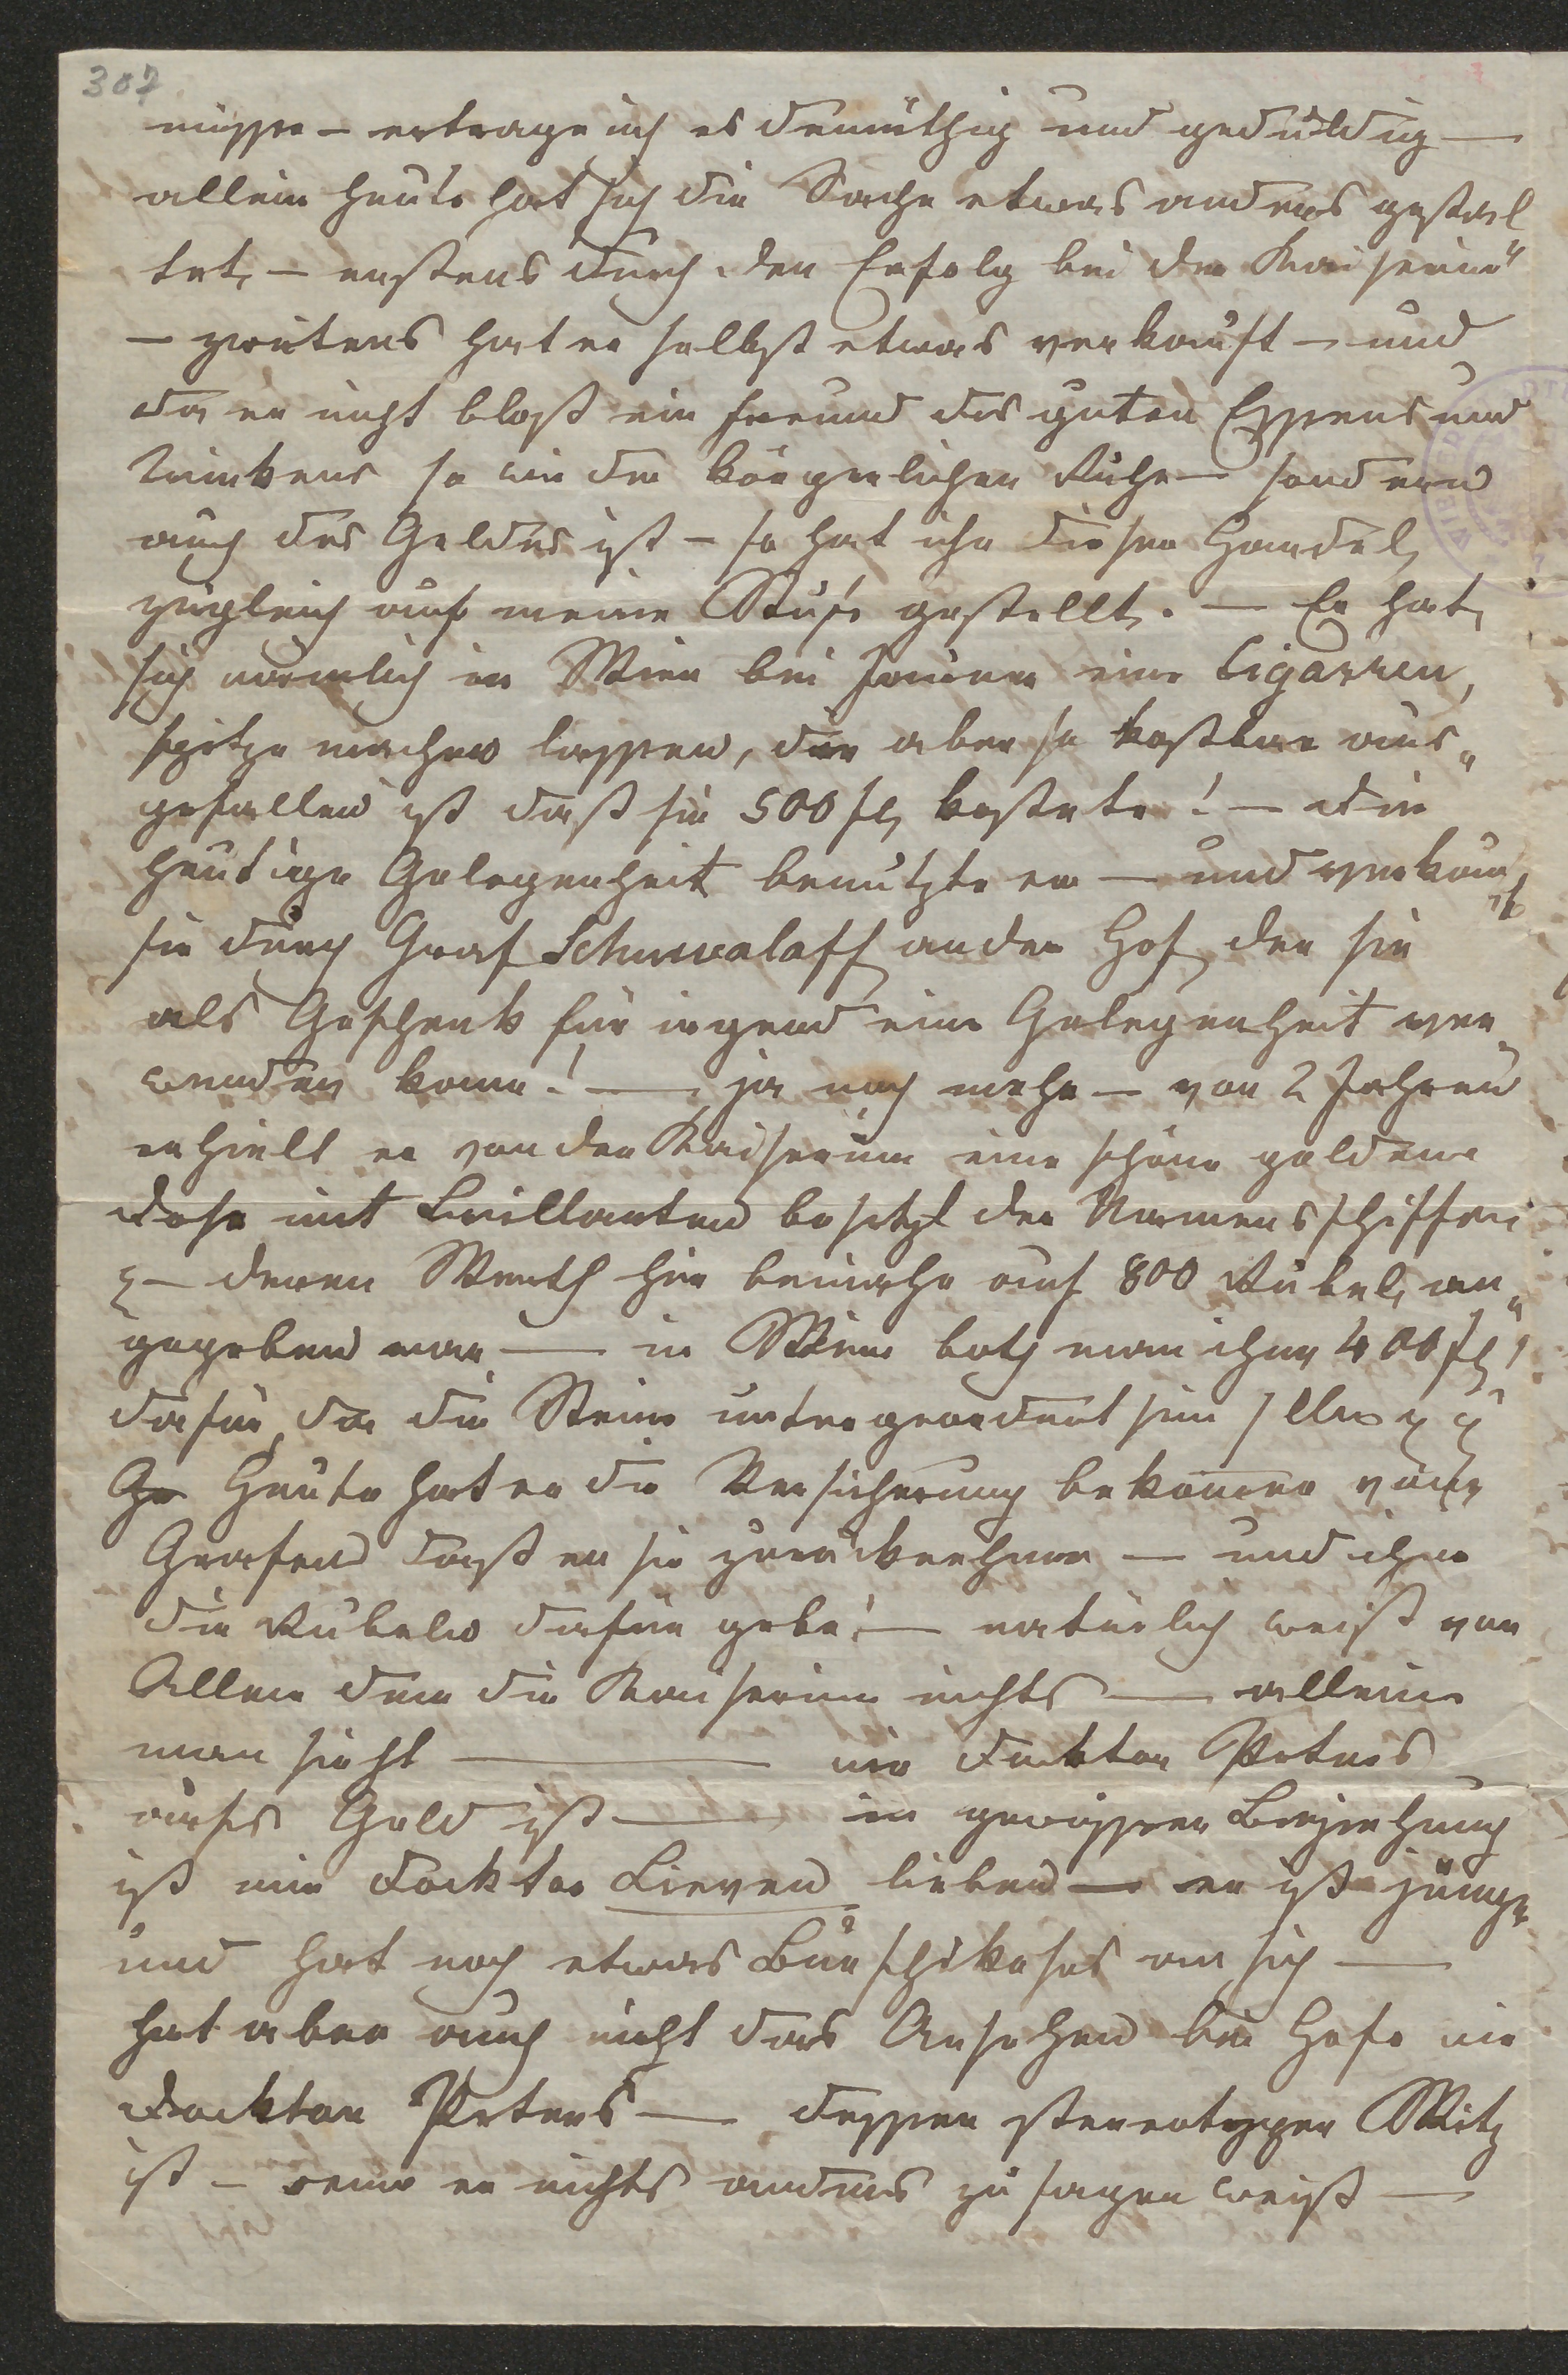 307
müsse – ertrage ich es demüthig und geduldig —
allein heute hat sich die Sache etwas anders gestal
tet, – erstens durch den Erfolg bei der Kaiserin"
– zweitens hat er selbst etwas verkauft – und
da er nicht bloß ein Freund des guten Essens und
Trinkens so wie der körperlichen Ruhe – sondern
auch des Geldes ist – so hat ihn dieser Handel
zugleich auf meine Stufe gestellt. — Er hat
sich nämlich in Wien bei eine Cigarren,
spitze machen lassen, die aber so kostbar aus„
gefallen ist daß sie 500 fl kostete! – Die
heutige Gelegenheit benützte er — und verkauf
te
sie durch Graf Schuwaloff an den Hof, der sie
als Geschenk für irgend eine Gelegenheit ver„
wenden kann! — ja noch mehr – vor 2 Jahren
erhielt er von der Kaiserinn eine schöne goldene
Dose mit Brillanten besetzt der Namensschiffer
– deren Werth hier beinahe auf 800 Rubel an„
gegeben war — in Wien both man ihm 400 fl!
dafür, da die Steine untergeordnet sein
Heute hat er die Versicherung bekommen vom
Grafen daß er sie zurücknehme — und ihm
die Rubeln dafür gebe! — natürlich weiß von
Allem dem die Kaiserinn nichts — allein
man sieht ——— wie Docktor Peters
aufs Geld ist — in gewisser Beziehung
ist mir Docktor Lieven lieber — er ist jünger
und hat noch etwas Burschikoses an sich —
hat aber auch nicht das Ansehen bei Hofe wie
Docktor Peters — dessen stereotyper Witz
ist – wenn er nichts anderes zu sagen weiß —